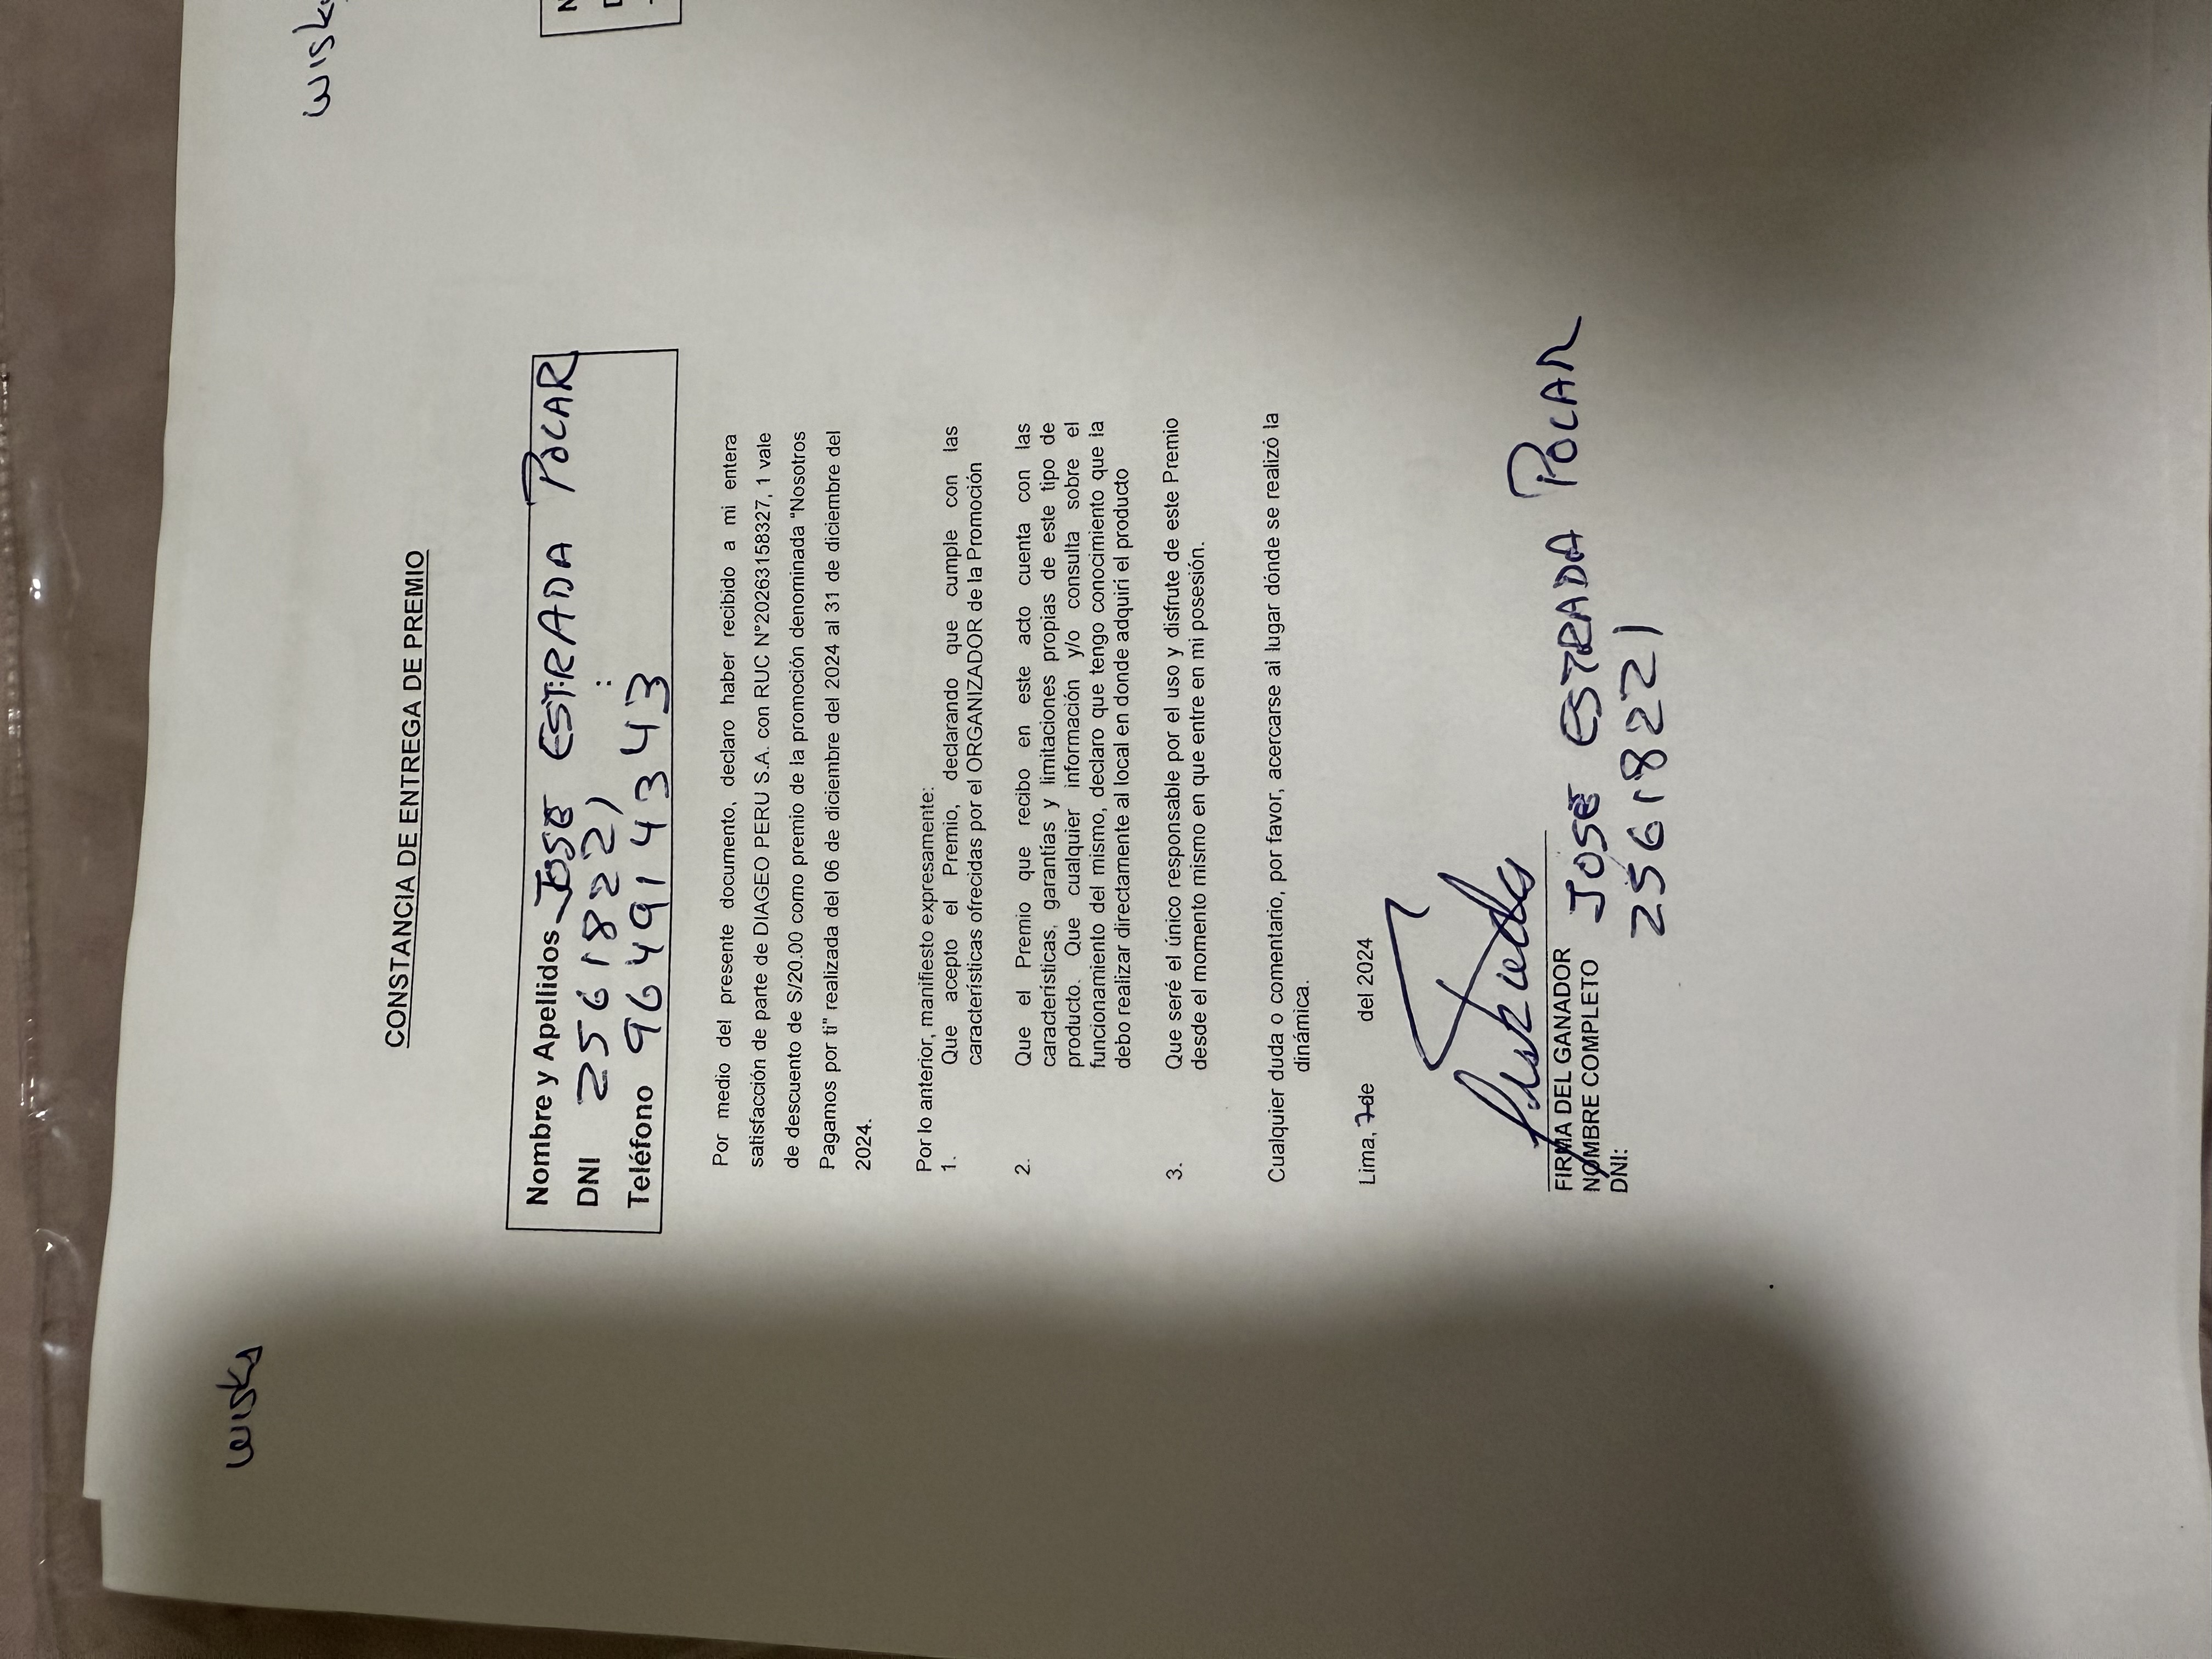 wisky
wisk
CONSTANCIA DE ENTREGA DE PREMIO
Nombre y Apellidos JOSE ESTRADA POLAR
DNI 25618221 :
Teléfono 964914343
Por medio del presente documento, declaro haber recibido a mi entera
satisfacción de parte de DIAGEO PERU S.A. con RUC N°20263158327, 1 vale
de descuento de S/20.00 como premio de la promoción denominada "Nosotros
Pagamos por ti" realizada del 06 de diciembre del 2024 al 31 de diciembre del
2024.
Por lo anterior, manifiesto expresamente:
1. Que acepto el Premio, declarando que cumple con las
características ofrecidas por el ORGANIZADOR de la Promoción
2. Que el Premio que recibo en este acto cuenta con las
características, garantías y limitaciones propias de este tipo de
producto. Que cualquier información y/o consulta sobre el
funcionamiento del mismo, declaro que tengo conocimiento que la
debo realizar directamente al local en donde adquirí el producto
3. Que seré el único responsable por el uso y disfrute de este Premio
desde el momento mismo en que entre en mi posesión.
Cualquier duda o comentario, por favor, acercarse al lugar dónde se realizó la
dinámica.
Lima, 7 de del 2024
FIRMA DEL GANADOR
NOMBRE COMPLETO JOSE ESTRADA POLAR
DNI: 25618221